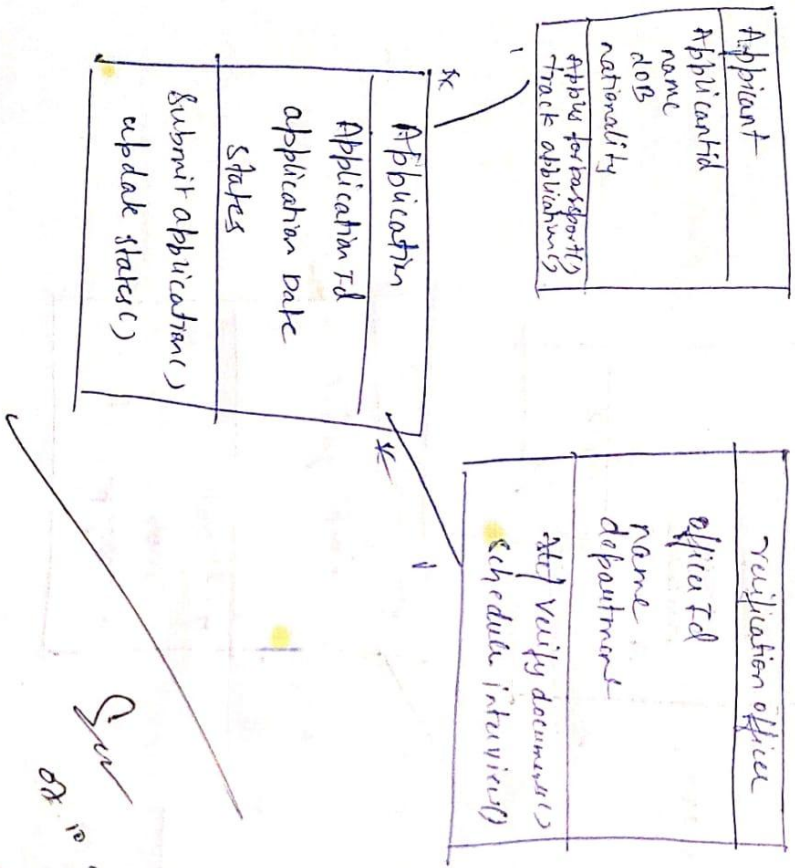 Appicant
Applicantid
name
dOB
nationality
Apply for passport()
Track application()
1
*
Application
Application Id
application Date
States
Submit application()
update states()
*
1
verification officer
officer Id
name
department
verify documents()
schedule interview()